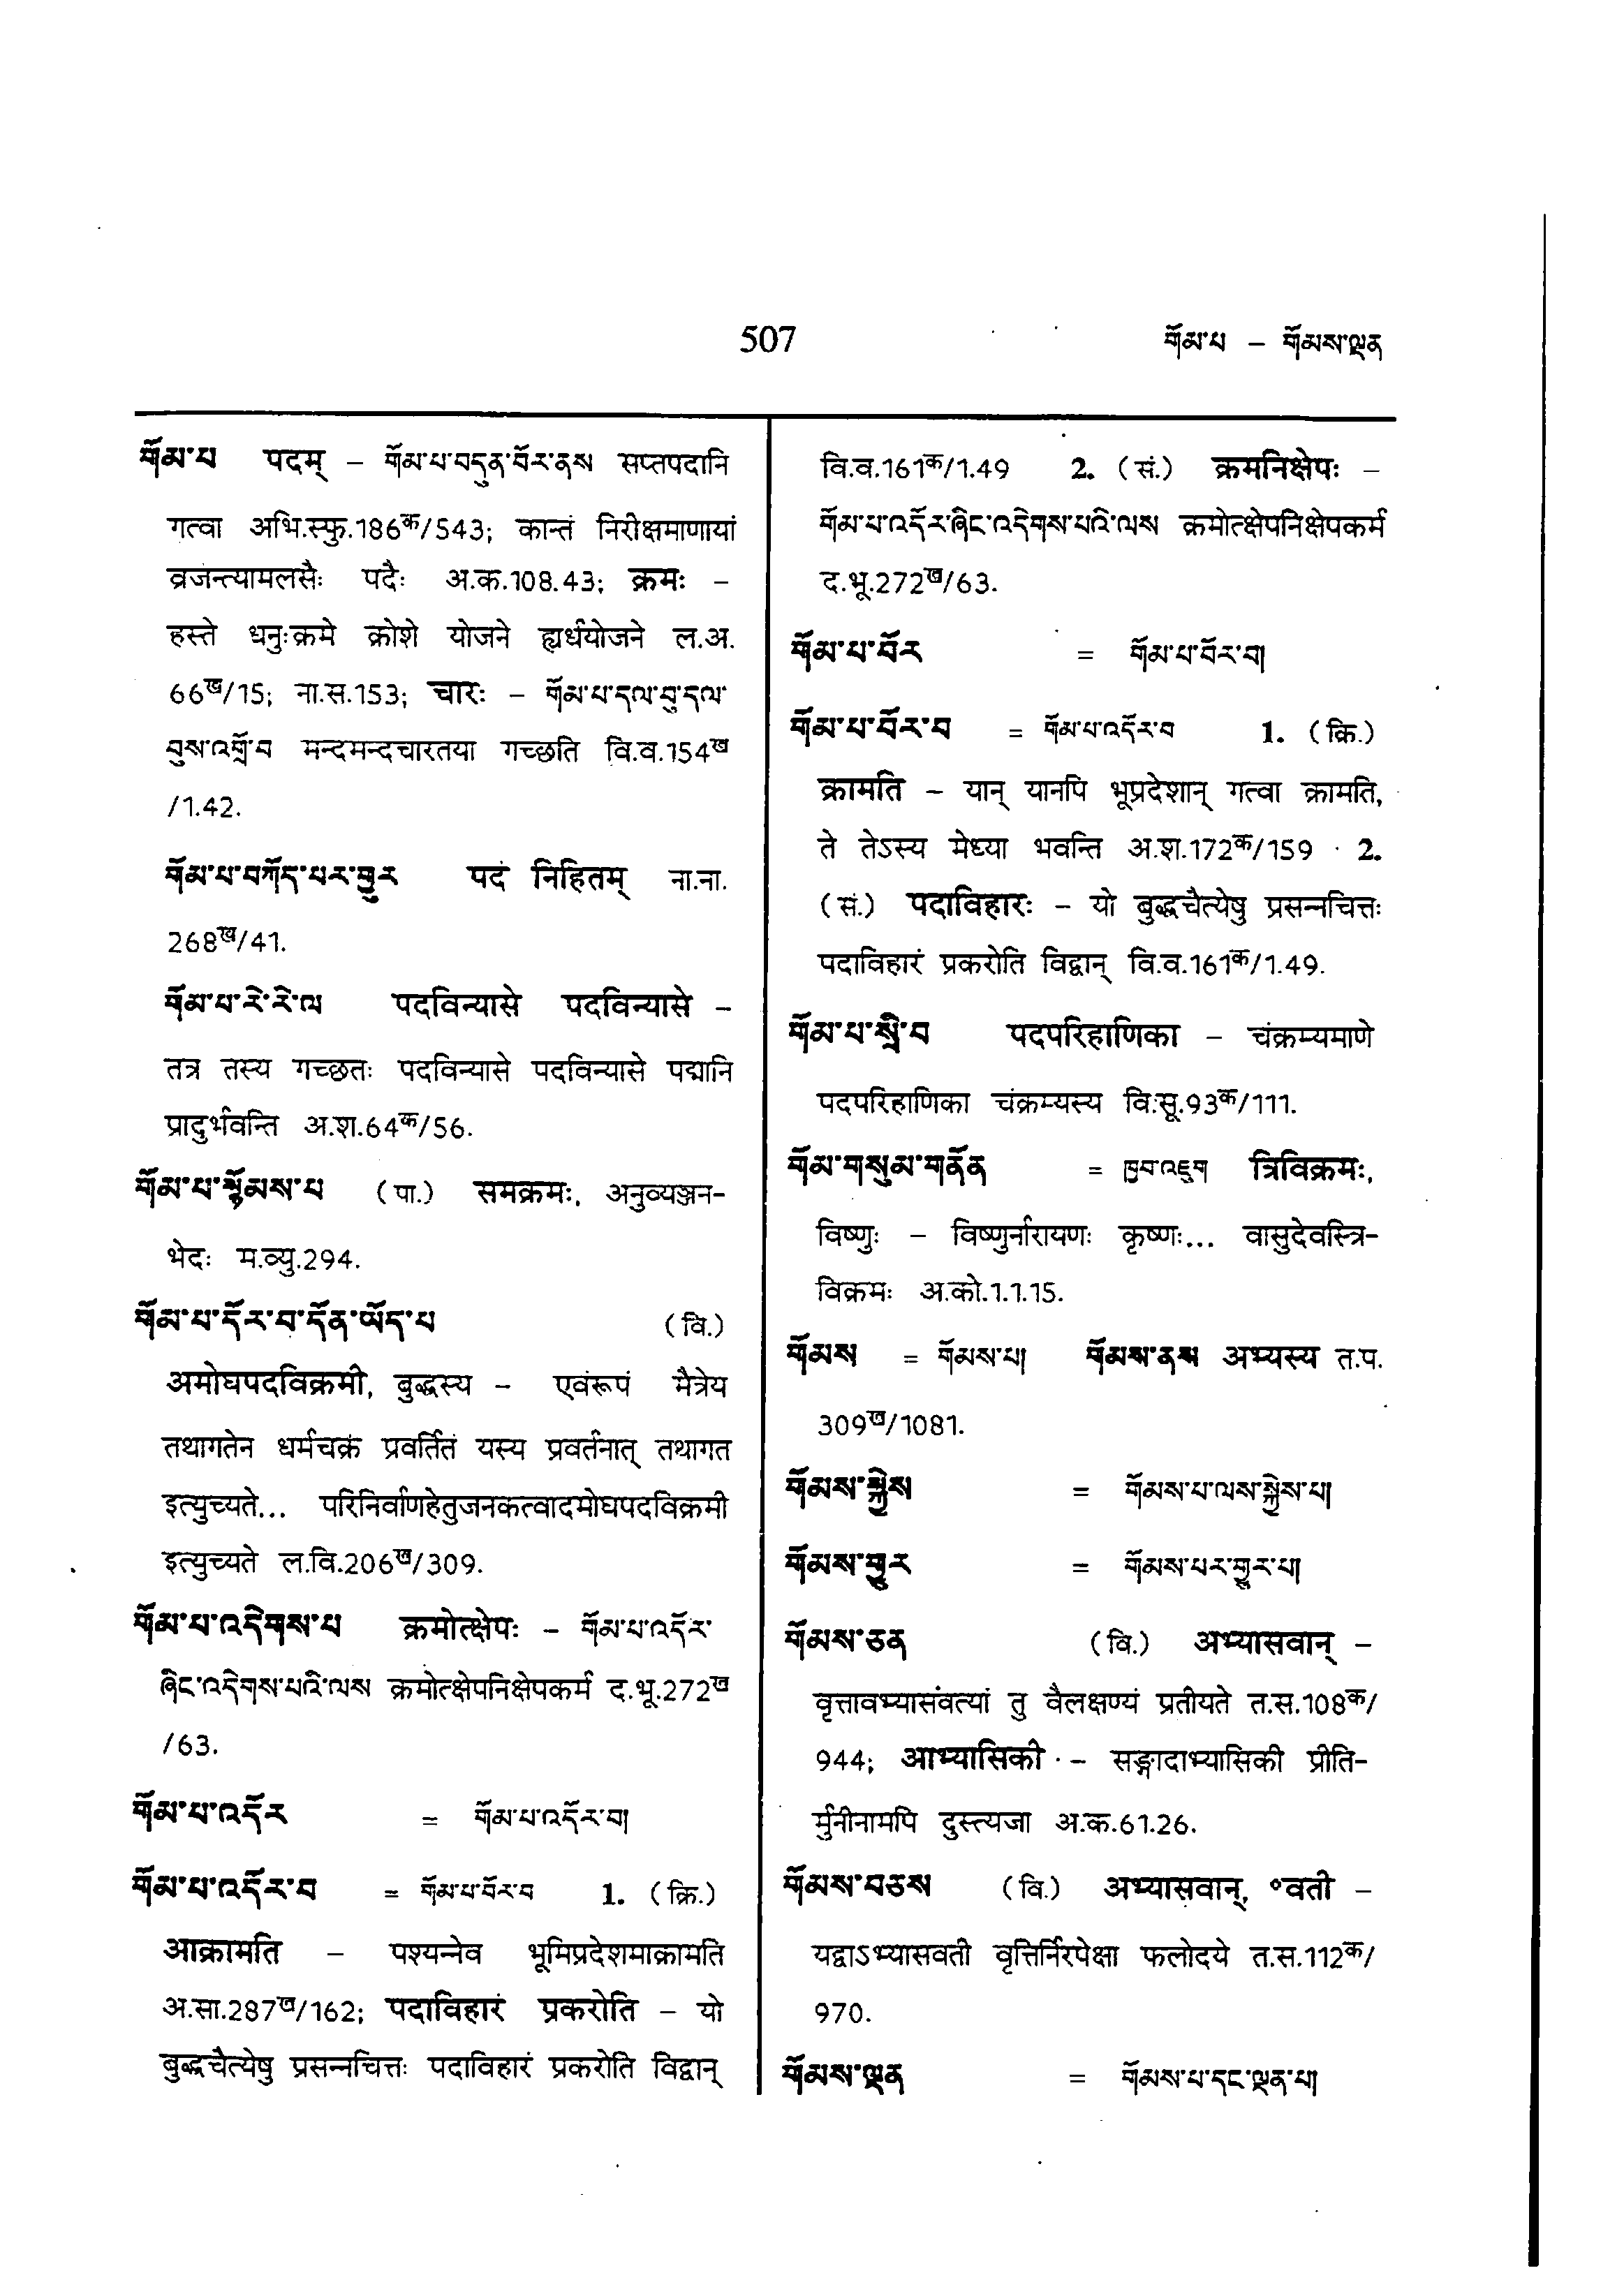 507
གོམ་པ – གོམས་ལྡན
གོམ་པ पदम् – གོམ་པ་བདུན་བོར་ནས सप्तपदानि
गत्वा अभि.स्फु.186क/543; कान्तं निरीक्षमाणायां
व्रजन्त्यामलसैः पदैः अ.क.108.43; क्रमः –
हस्ते धनुःक्रमे क्रोशे योजने ह्यर्धयोजने ल.अ.
66ख/15; ना.स.153; चारः – གོམ་པ་དལ་བུ་དལ་
བུས་འགྲོ་བ मन्दमन्दचारतया गच्छति वि.व.154ख
/1.42.
གོམ་པ་བཀོད་པར་གྱུར पदं निहितम् ना.ना.
268ख/41.
གོམ་པ་རེ་རེ་ལ पदविन्यासे पदविन्यासे –
तत्र तस्य गच्छतः पदविन्यासे पदविन्यासे पद्मानि
प्रादुर्भवन्ति अ.श.64क/56.
གོམ་པ་སྙོམས་པ (पा.) समक्रमः, अनुव्यञ्जन-
भेदः म.व्यु.294.
གོམ་པ་དོར་བ་དོན་ཡོད་པ (वि.)
अमोघपदविक्रमी, बुद्धस्य – एवंरूपं मैत्रेय
तथागतेन धर्मचक्रं प्रवर्तितं यस्य प्रवर्तनात् तथागत
इत्युच्यते... परिनिर्वाणहेतुजनकत्वादमोघपदविक्रमी
इत्युच्यते ल.वि.206ख/309.
གོམ་པ་འདེགས་པ क्रमोत्क्षेपः – གོམ་པ་འདོར་
ཞིང་འདེགས་པའི་ལས क्रमोत्क्षेपनिक्षेपकर्म द.भू.272ख
/63.
གོམ་པ་འདོར = གོམ་པ་འདོར་བ།
གོམ་པ་འདོར་བ = གོམ་པ་བོར་བ 1. (क्रि.)
आक्रामति – पश्यन्नेव भूमिप्रदेशमाक्रामति
अ.सा.287ख/162; पदाविहारं प्रकरोति – यो
बुद्धचैत्येषु प्रसन्नचित्तः पदाविहारं प्रकरोति विद्वान्
वि.व.161क/1.49 2. (सं.) क्रमनिक्षेपः –
གོམ་པ་འདོར་ཞིང་འདེགས་པའི་ལས क्रमोत्क्षेपनिक्षेपकर्म
द.भू.272ख/63.
གོམ་པ་བོར = གོམ་པ་བོར་བ།
གོམ་པ་བོར་བ = གོམ་པ་འདོར་བ 1. (क्रि.)
क्रामति – यान् यानपि भूप्रदेशान् गत्वा क्रामति,
ते तेऽस्य मेध्या भवन्ति अ.श.172क/159 2.
(सं.) पदाविहारः – यो बुद्धचैत्येषु प्रसन्नचित्तः
पदाविहारं प्रकरोति विद्वान् वि.व.161क/1.49.
གོམ་པ་སྲི་བ पदपरिहाणिका – चंक्रम्यमाणे
पदपरिहाणिका चंक्रम्यस्य वि.सू.93क/111.
གོམ་གསུམ་གནོན = ཁྱབ་འཇུག त्रिविक्रमः,
विष्णुः – विष्णुर्नारायणः कृष्णः... वासुदेवस्त्रि-
विक्रमः अ.को.1.1.15.
གོམས = གོམས་པ། གོམས་ནས अभ्यस्य त.प.
309ख/1081.
གོམས་སྐྱེས = གོམས་པ་ལས་སྐྱེས་པ།
གོམས་གྱུར = གོམས་པར་གྱུར་པ།
གོམས་ཅན (वि.) अभ्यासवान् –
वृत्तावभ्यासवत्यां तु वैलक्षण्यं प्रतीयते त.स.108क/
944; आभ्यासिकी – सङ्गादाभ्यासिकी प्रीति-
र्मुनीनामपि दुस्त्यजा अ.क.61.26.
གོམས་བཅས (वि.) अभ्यासवान्, °वती –
यद्वाऽभ्यासवती वृत्तिर्निरपेक्षा फलोदये त.स.112क/
970.
གོམས་ལྡན = གོམས་པ་དང་ལྡན་པ།